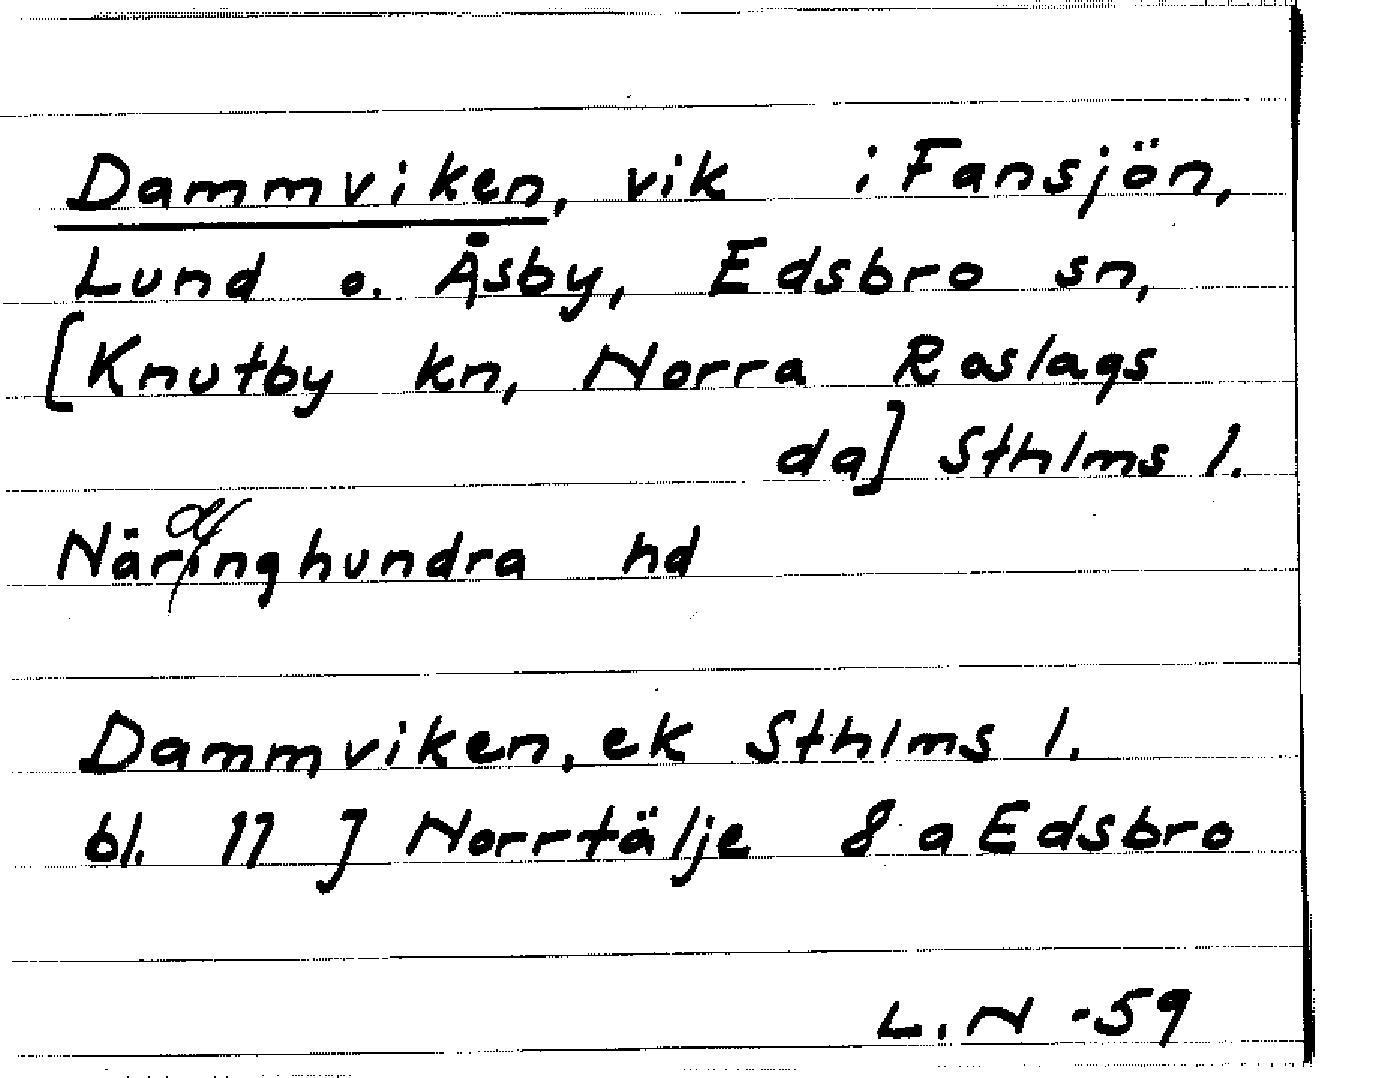 Dammviken, vik i Fansjön,
Lund o. Åsby, Edsbro sn,
[Knutby kn, Norra Roslags
da] Sthlms l.
Näringhundra hd
Dammviken, ek Sthlms l.
bl. 11 J Norrtälje 8 a Edsbro
L. N -59